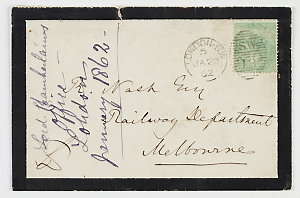 Lord Chamberlain's
Office
London
January 1862
LONDON
5
JA 22
62
Nash Esq
Railway Department
Melbourne